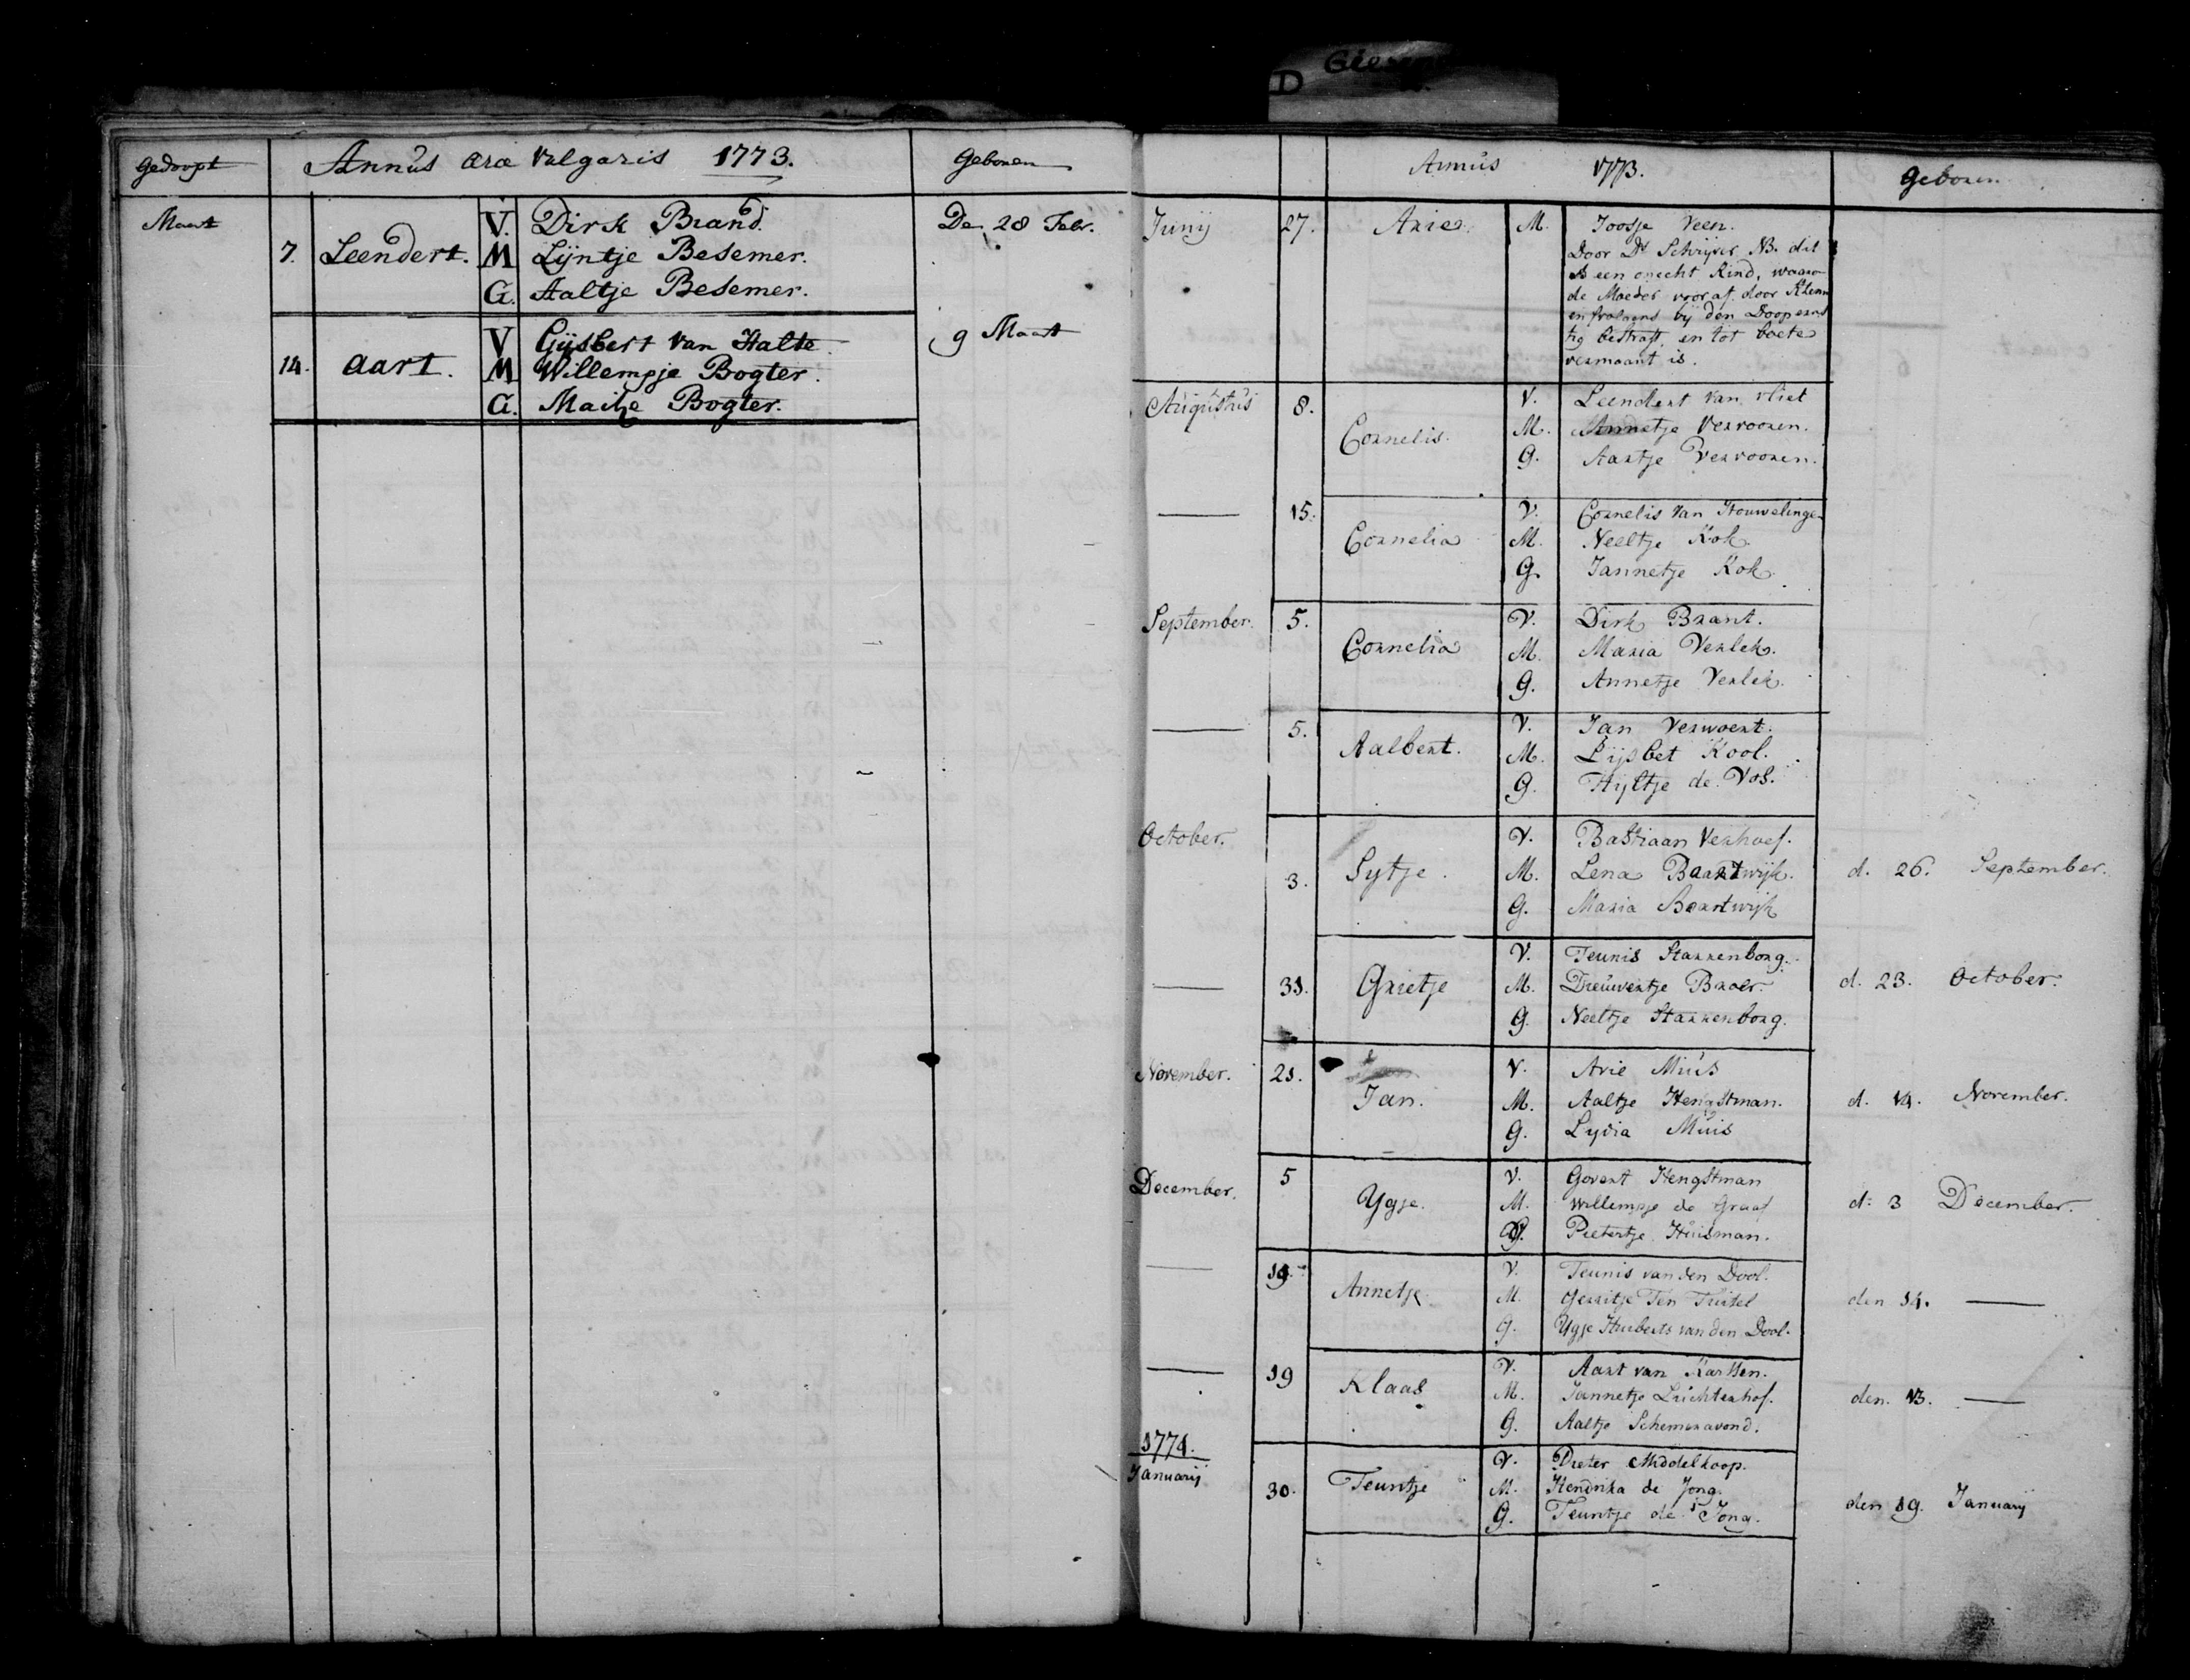 D
Gedoopt Annus æræ Vulgaris 1773. Geboren
Maart
7. Leendert. V. Dirk Brand. Den 28 Febr.
M Lijntje Besemer.
G. Aaltje Besemer.
14. Aart. V Gijsbert van Halte 9 Maart
M Willempje Bogter.
G. Maitje Bogter.
Annus 1773. Geboren
Junij 27. Arie. M. Joosje Veen.
Door Ds Schrijver NB. dit
is een onecht Kind, waar
de Moeder vooraf door
bij den Doop erns
tig bestraft, en tot boete
vermaant is.
Augustus 8. Cornelis. V. Leendert van vliet
M. Annetje Vervooren.
G. Aartje Vervooren.
15. Cornelia V. Cornelis van Houwelingen
M. Neeltje Kok
G. Jannetje Kok
September. 5. Cornelia V. Dirk Brant.
M. Maria Verlek.
G. Annetje Verlek.
5. Aalbert. V. Jan Verwoert.
M. Lijsbet Kool.
G. Hijltje de Vos.
October. 3. Sytje. V. Bastiaan Verhoef.
M. Lena Baartwijk. d. 26. September.
G. Maria Baartwijk
31. Grietje V. Teunis Starrenborg.
M. Dieuwertje Broer. d. 23. October.
G. Neeltje Starrenborg.
November. 21. Jan. V. Arie Muis
M. Aaltje Hengstman. d. 14. November.
G. Lydia Muis
December. 5 Ygje. V. Govert Hengstman
M. Willempje de Graaf d. 3 December.
G. Pietertje Huisman.
19. Annetje V. Teunis van den Dool.
M. Gerritje Den Tuitel den 14.
G. Ygje Huiberts van den Dool.
19 Klaas V. Aart van Karssen.
M. Jannetje Luchtenhof. den. 13.
G. Aaltje Schemeravond.
1774.
Januarij 30. Teuntje V. Pieter Middelkoop.
M. Hendrika de Jong. den 19. Januarij
G. Teuntje de Jong.